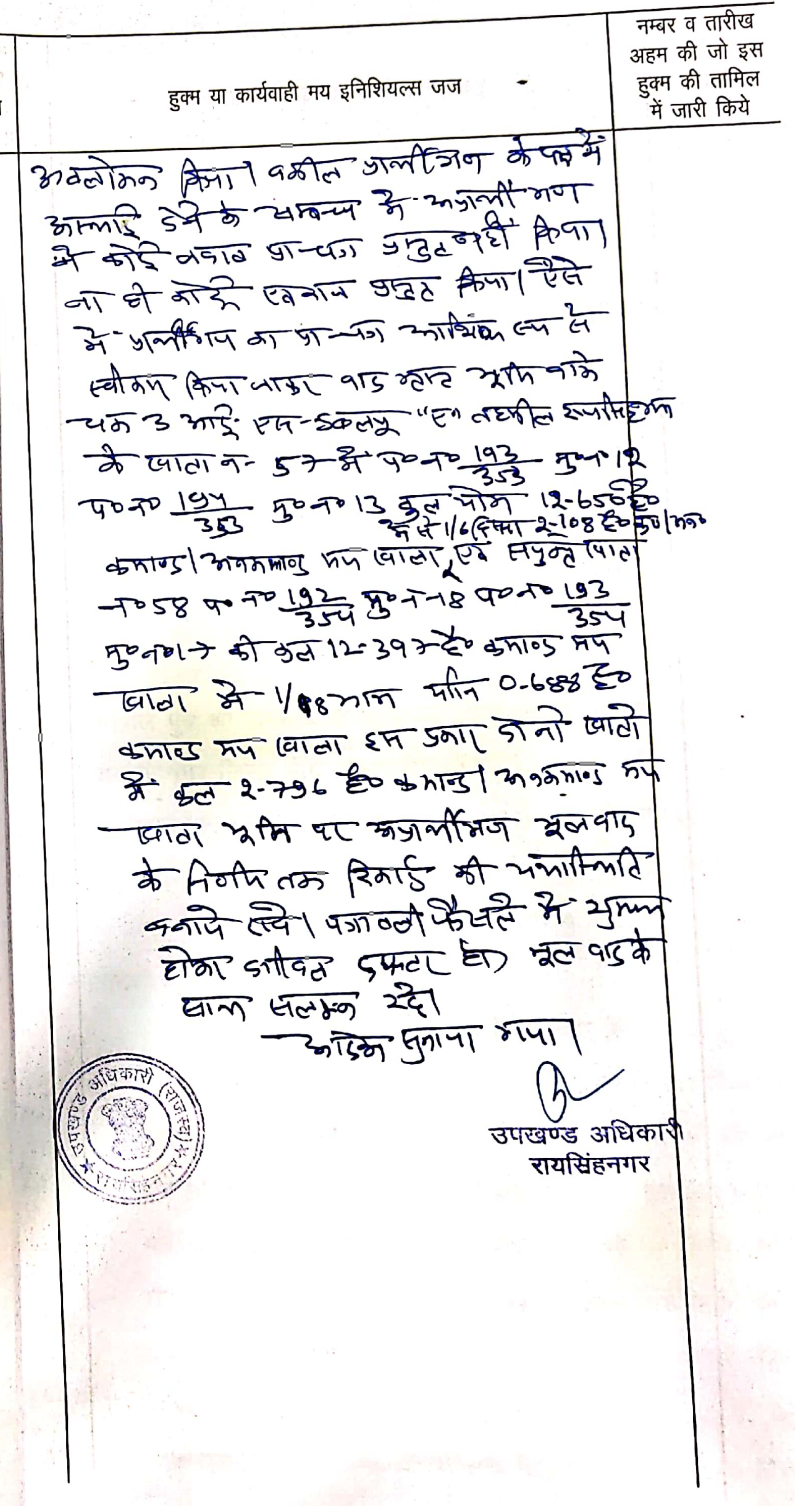 नम्बर व तारीख
अहम की जो इस
हुक्म की तामिल
में जारी किये
हुक्म या कार्यवाही मय इनिशियल्स जज
अवलोकन किया। वकील प्रार्थीगण के पक्ष में
देने के सम्बन्ध में अप्रार्थीगण
ने कोई जवाब प्रा-पत्र प्रस्तुत नहीं किया।
ना ही कोई प्रस्तुत किया। ऐसे
में प्रार्थीगण का प्रा-पत्र आंशिक रूप से
स्वीकार किया जाकर वाद ग्रस्त भूमि वाके
चक 3 आई. एस-डब्लयू "ए" तहसील रायसिंहनगर
के खाता न- 57 में प०न० 193/353 मु०न० 12
प०न० 194/353 मु०न० 13 कुल योग 12-650 है०
में से 1/6 हिस्सा 2-108 है०
कमाण्ड/अनकमाण्ड मय खाला, एवं संयुक्त खाता
न०58 प०न० 192/354 मु०न-18 प०न० 193/354
मु०न०17 की कुल 12-397 है० कमाण्ड मय
खाला में 1/18 भाग यानि 0-688 है०
कमाण्ड मय खाला इस प्रकार दोनो खातो
में कुल 2-796 है० कमाण्ड/अनकमाण्ड मय
खाला भूमि पर अप्रार्थीगण मूलवाद
के निर्णय तक रिकार्ड की यथास्थिति
बनाये रखे। पत्रावली फैसले में शुमार
होकर दफतर हो मूल वाद के
साथ सलग्न रहे।
आदेश सुनाया गया।
उपखण्ड अधिकारी
रायसिंहनगर
उपखण्ड अधिकारी (राजस्व)
रायसिंहनगर